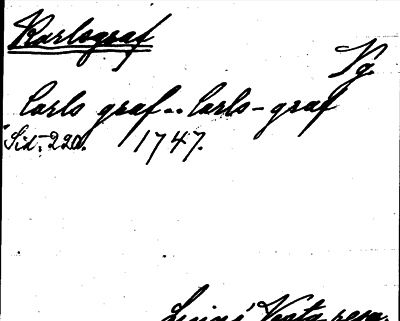 Karlsgraf
Vg.
Carls graf.. Carls-graf
Sid. 220. 1747.
Linné Västg. resa.